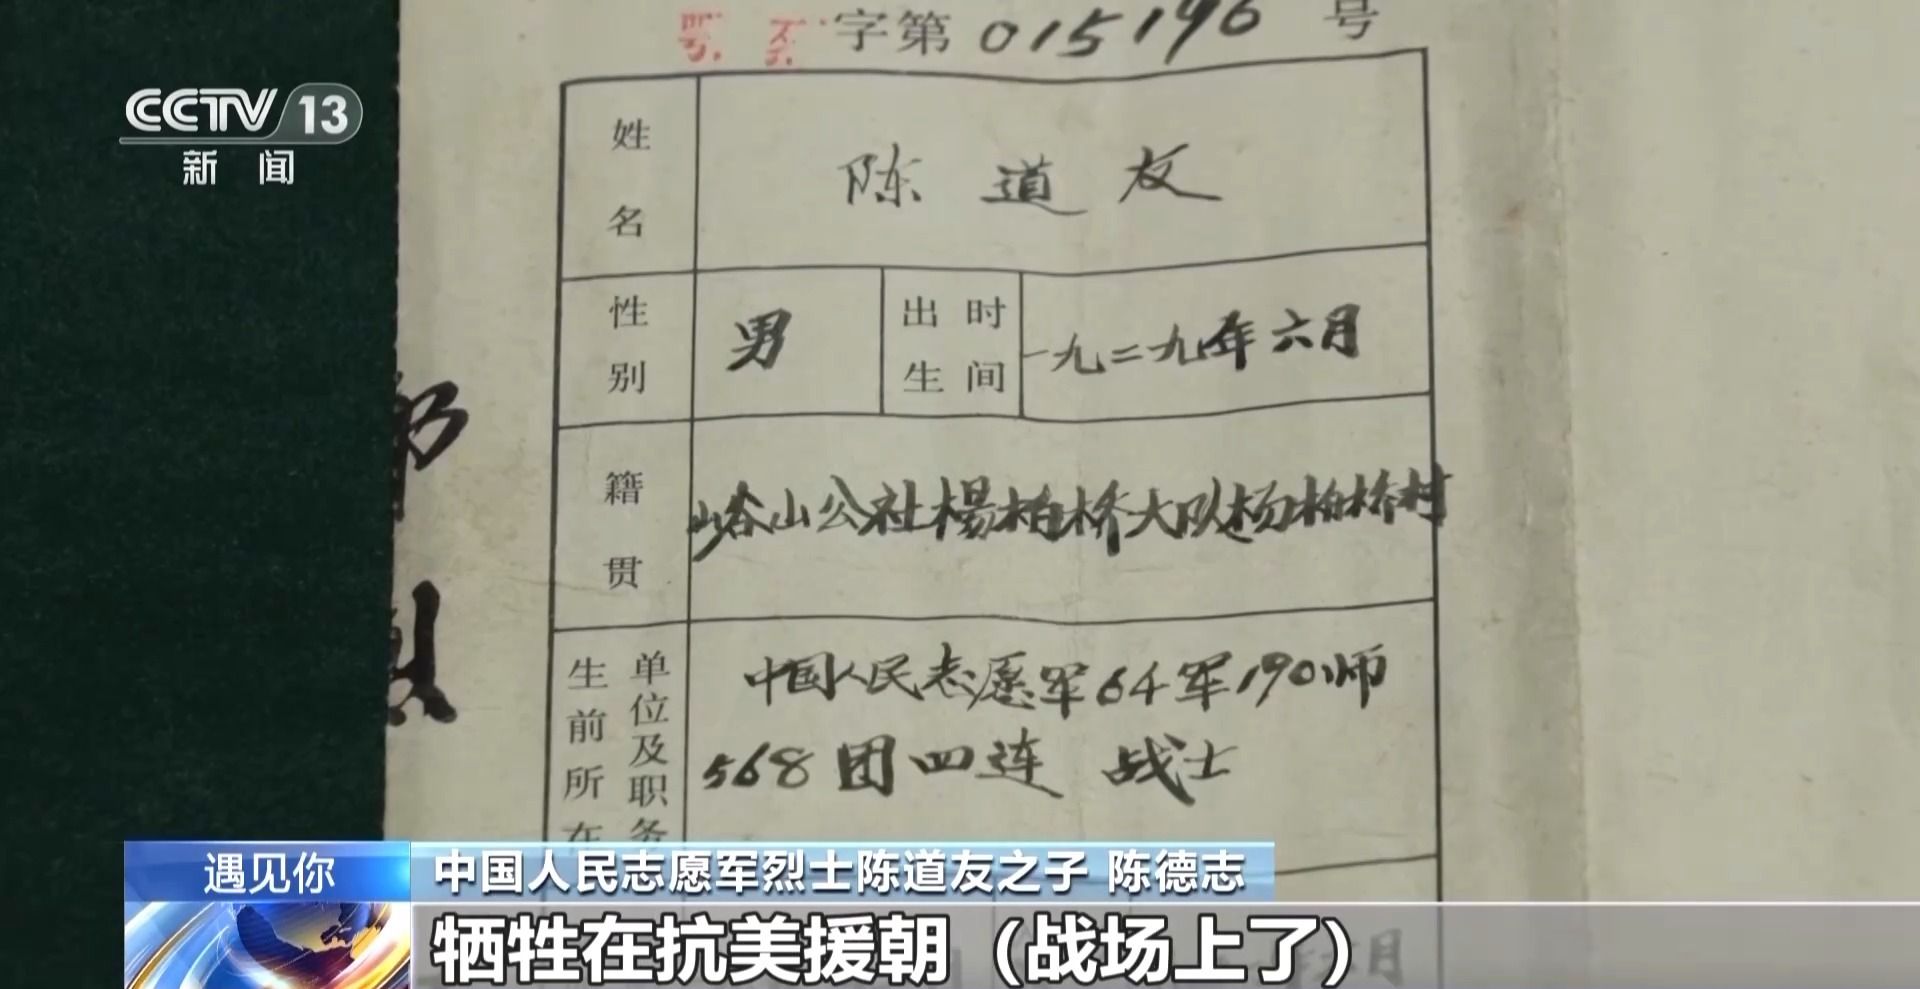 字第015196号
CCTV 13
新闻
姓名 陈道友
性别 男 出生时间 一九二九年六月
籍贯 峪山公社楊柏桥大队杨柏桥村
生前所在单位及职务 中国人民志愿军64军190师
568团四连 战士
遇见你 中国人民志愿军烈士陈道友之子 陈德志
牺牲在抗美援朝（战场上了）
月